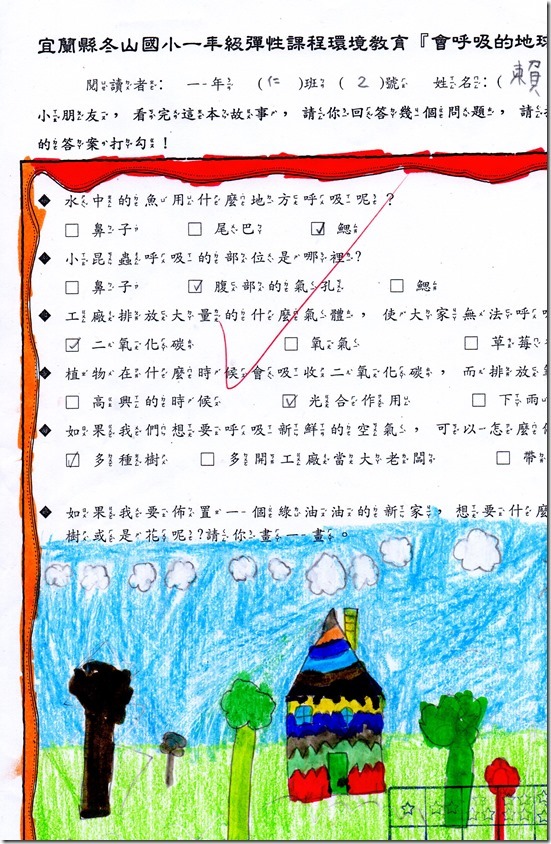 宜蘭縣冬山國小一年級彈性課程環境教育『會呼吸的地球
閱讀者: 一年(仁)班(2)號 姓名:(賴
小朋友,看完這本故事,請你回答幾個問題,請
的答案打勾!
◆ 水中的魚用什麼地方呼吸呢?
□ 鼻子 □ 尾巴 ☑ 鰓
◆ 小昆蟲呼吸的部位是哪裡?
□ 鼻子 ☑ 腹部的氣孔 □ 鰓
◆ 工廠排放大量的什麼氣體,使大家無法呼
☑ 二氧化碳 □ 氧氣 □ 草莓
◆ 植物在什麼時候會吸收二氧化碳,而排放
□ 高興的時候 ☑ 光合作用 □ 下雨
◆ 如果我們想要呼吸新鮮的空氣,可以怎麼
☑ 多種樹 □ 多開工廠當大老闆 □ 帶
◆ 如果我要佈置一個綠油油的新家,想要什麼
樹或是花呢?請你畫一畫。